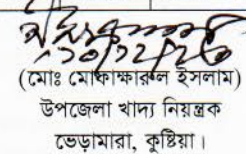 (মোঃ মোফাক্ষারুল ইসলাম)
উপজেলা খাদ্য নিয়ন্ত্রক
ভেড়ামারা, কুষ্টিয়া।